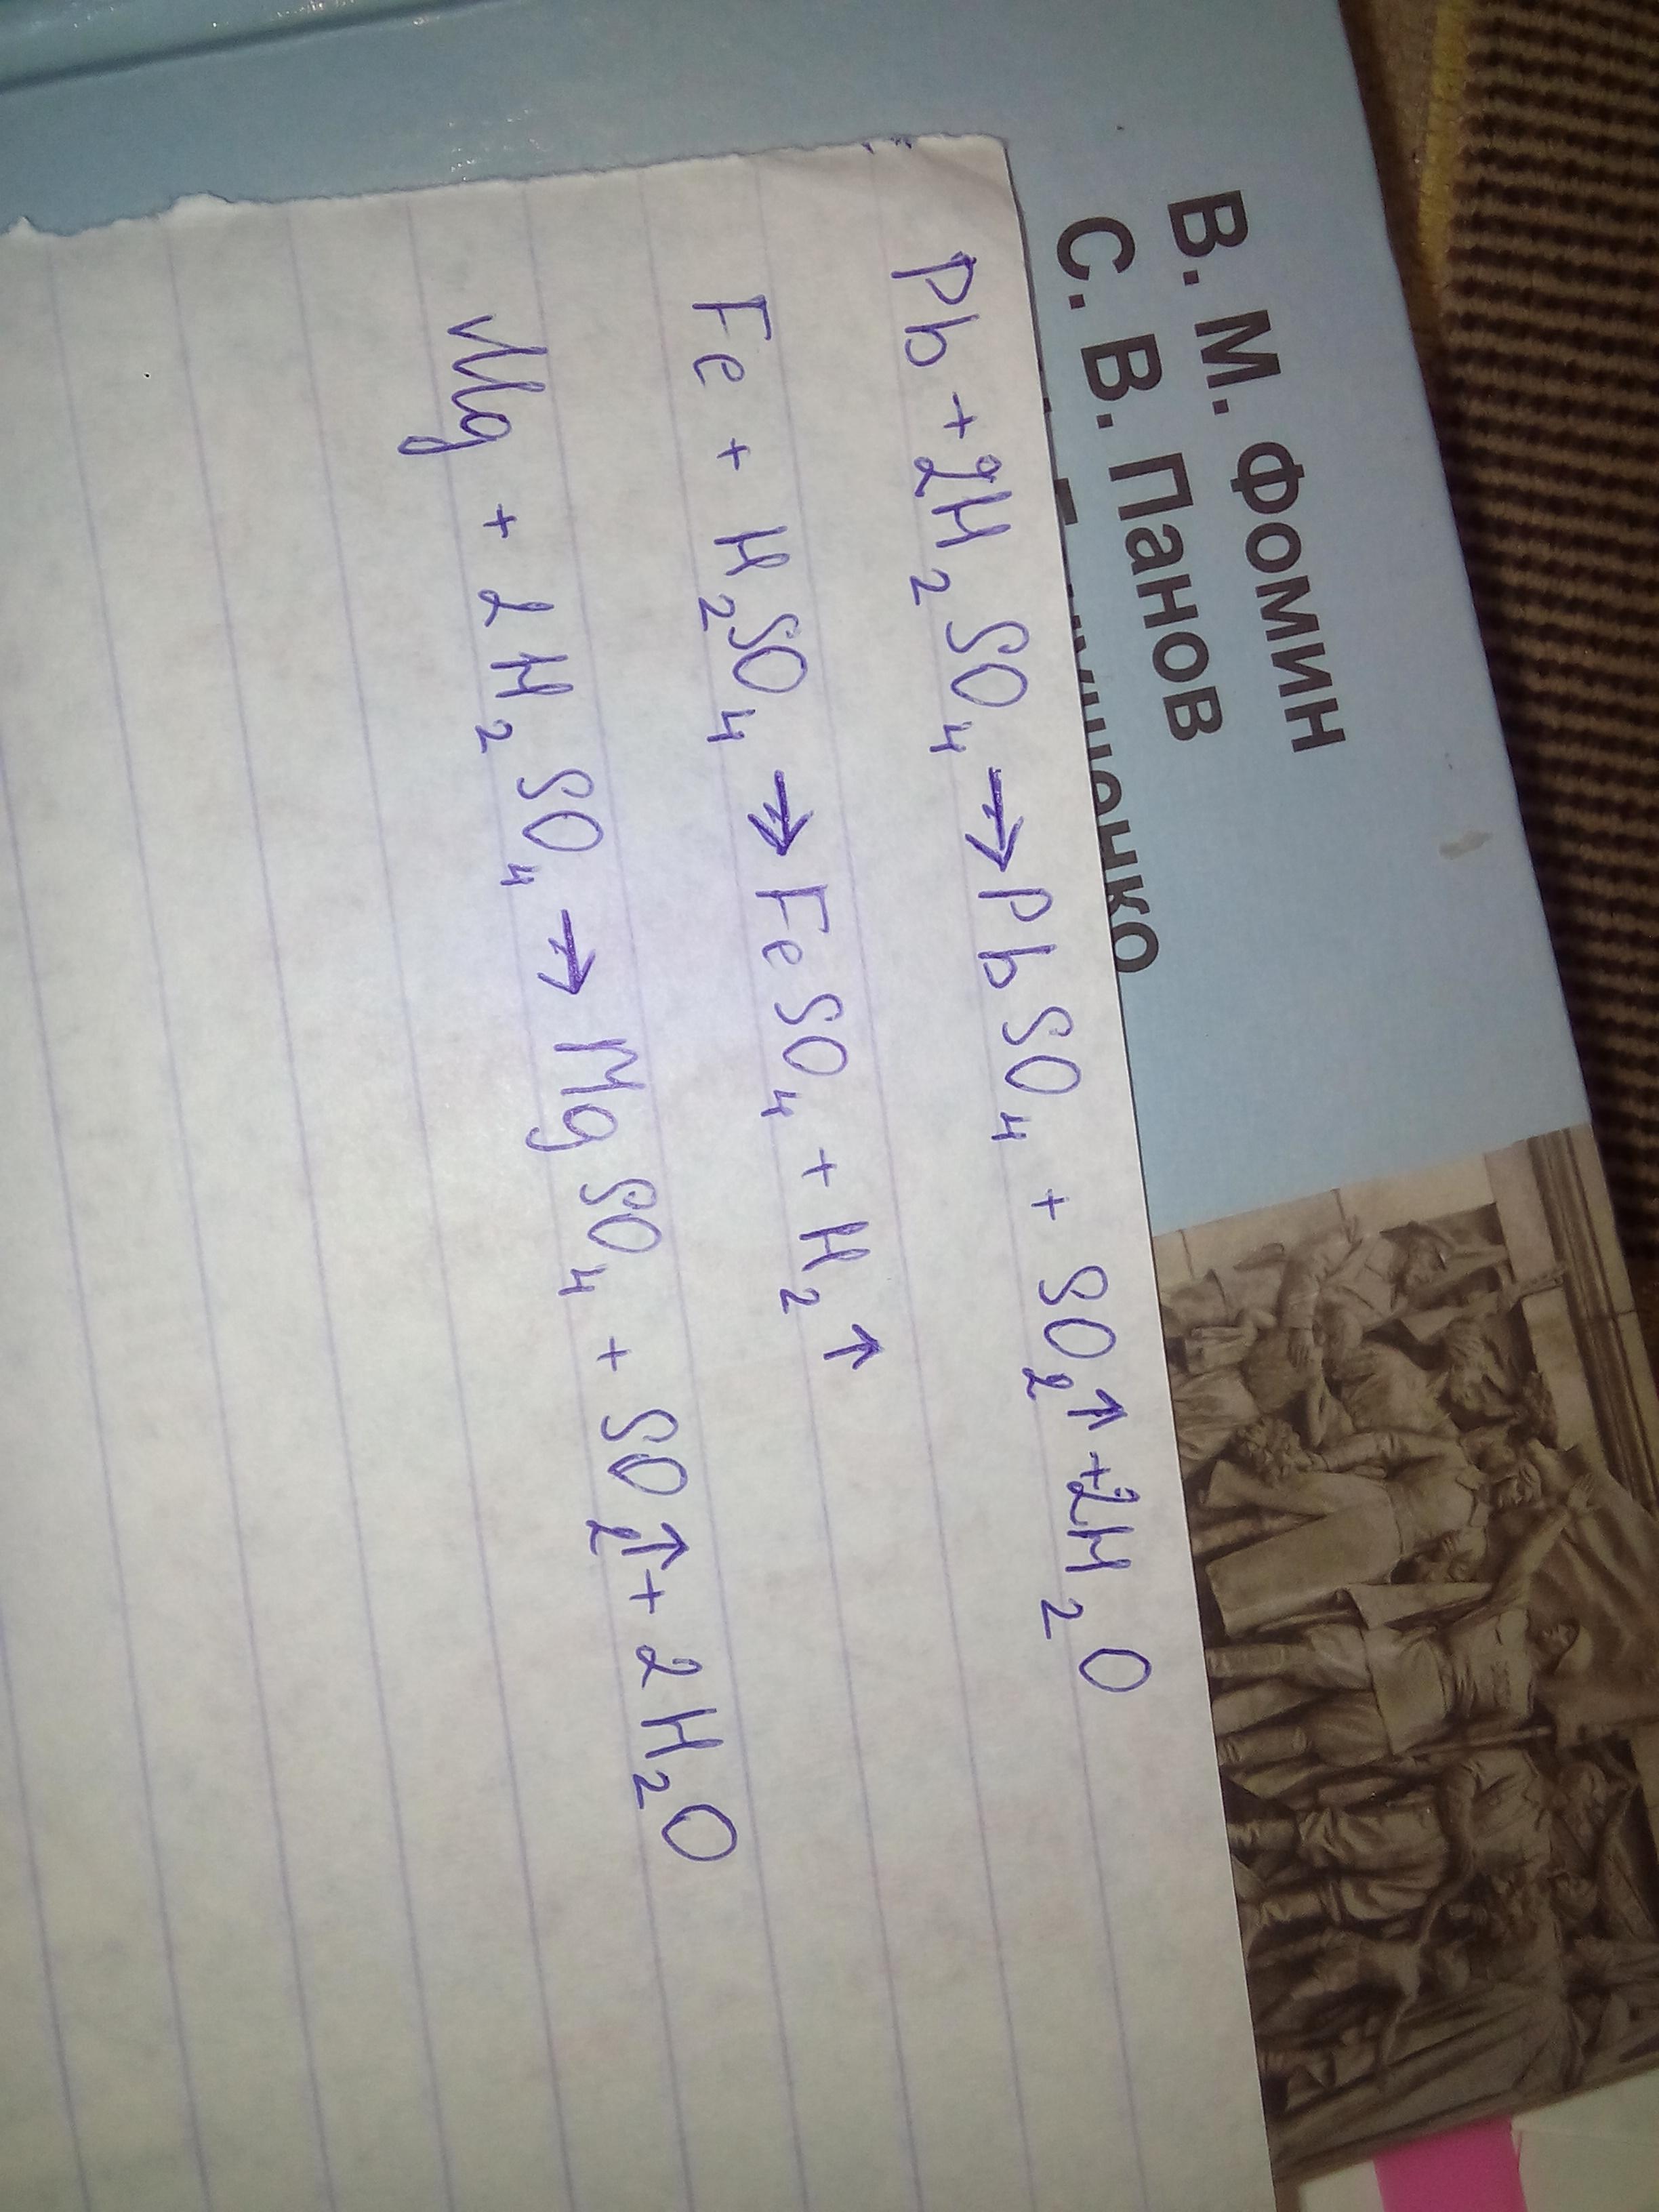 В. М. Фомин
С. В. Панов
Pb + 2H₂SO₄ → PbSO₄ + SO₂↑ + 2H₂O
Fe + H₂SO₄ → FeSO₄ + H₂↑
Mg + 2H₂SO₄ → MgSO₄ + SO₂↑ + 2H₂O